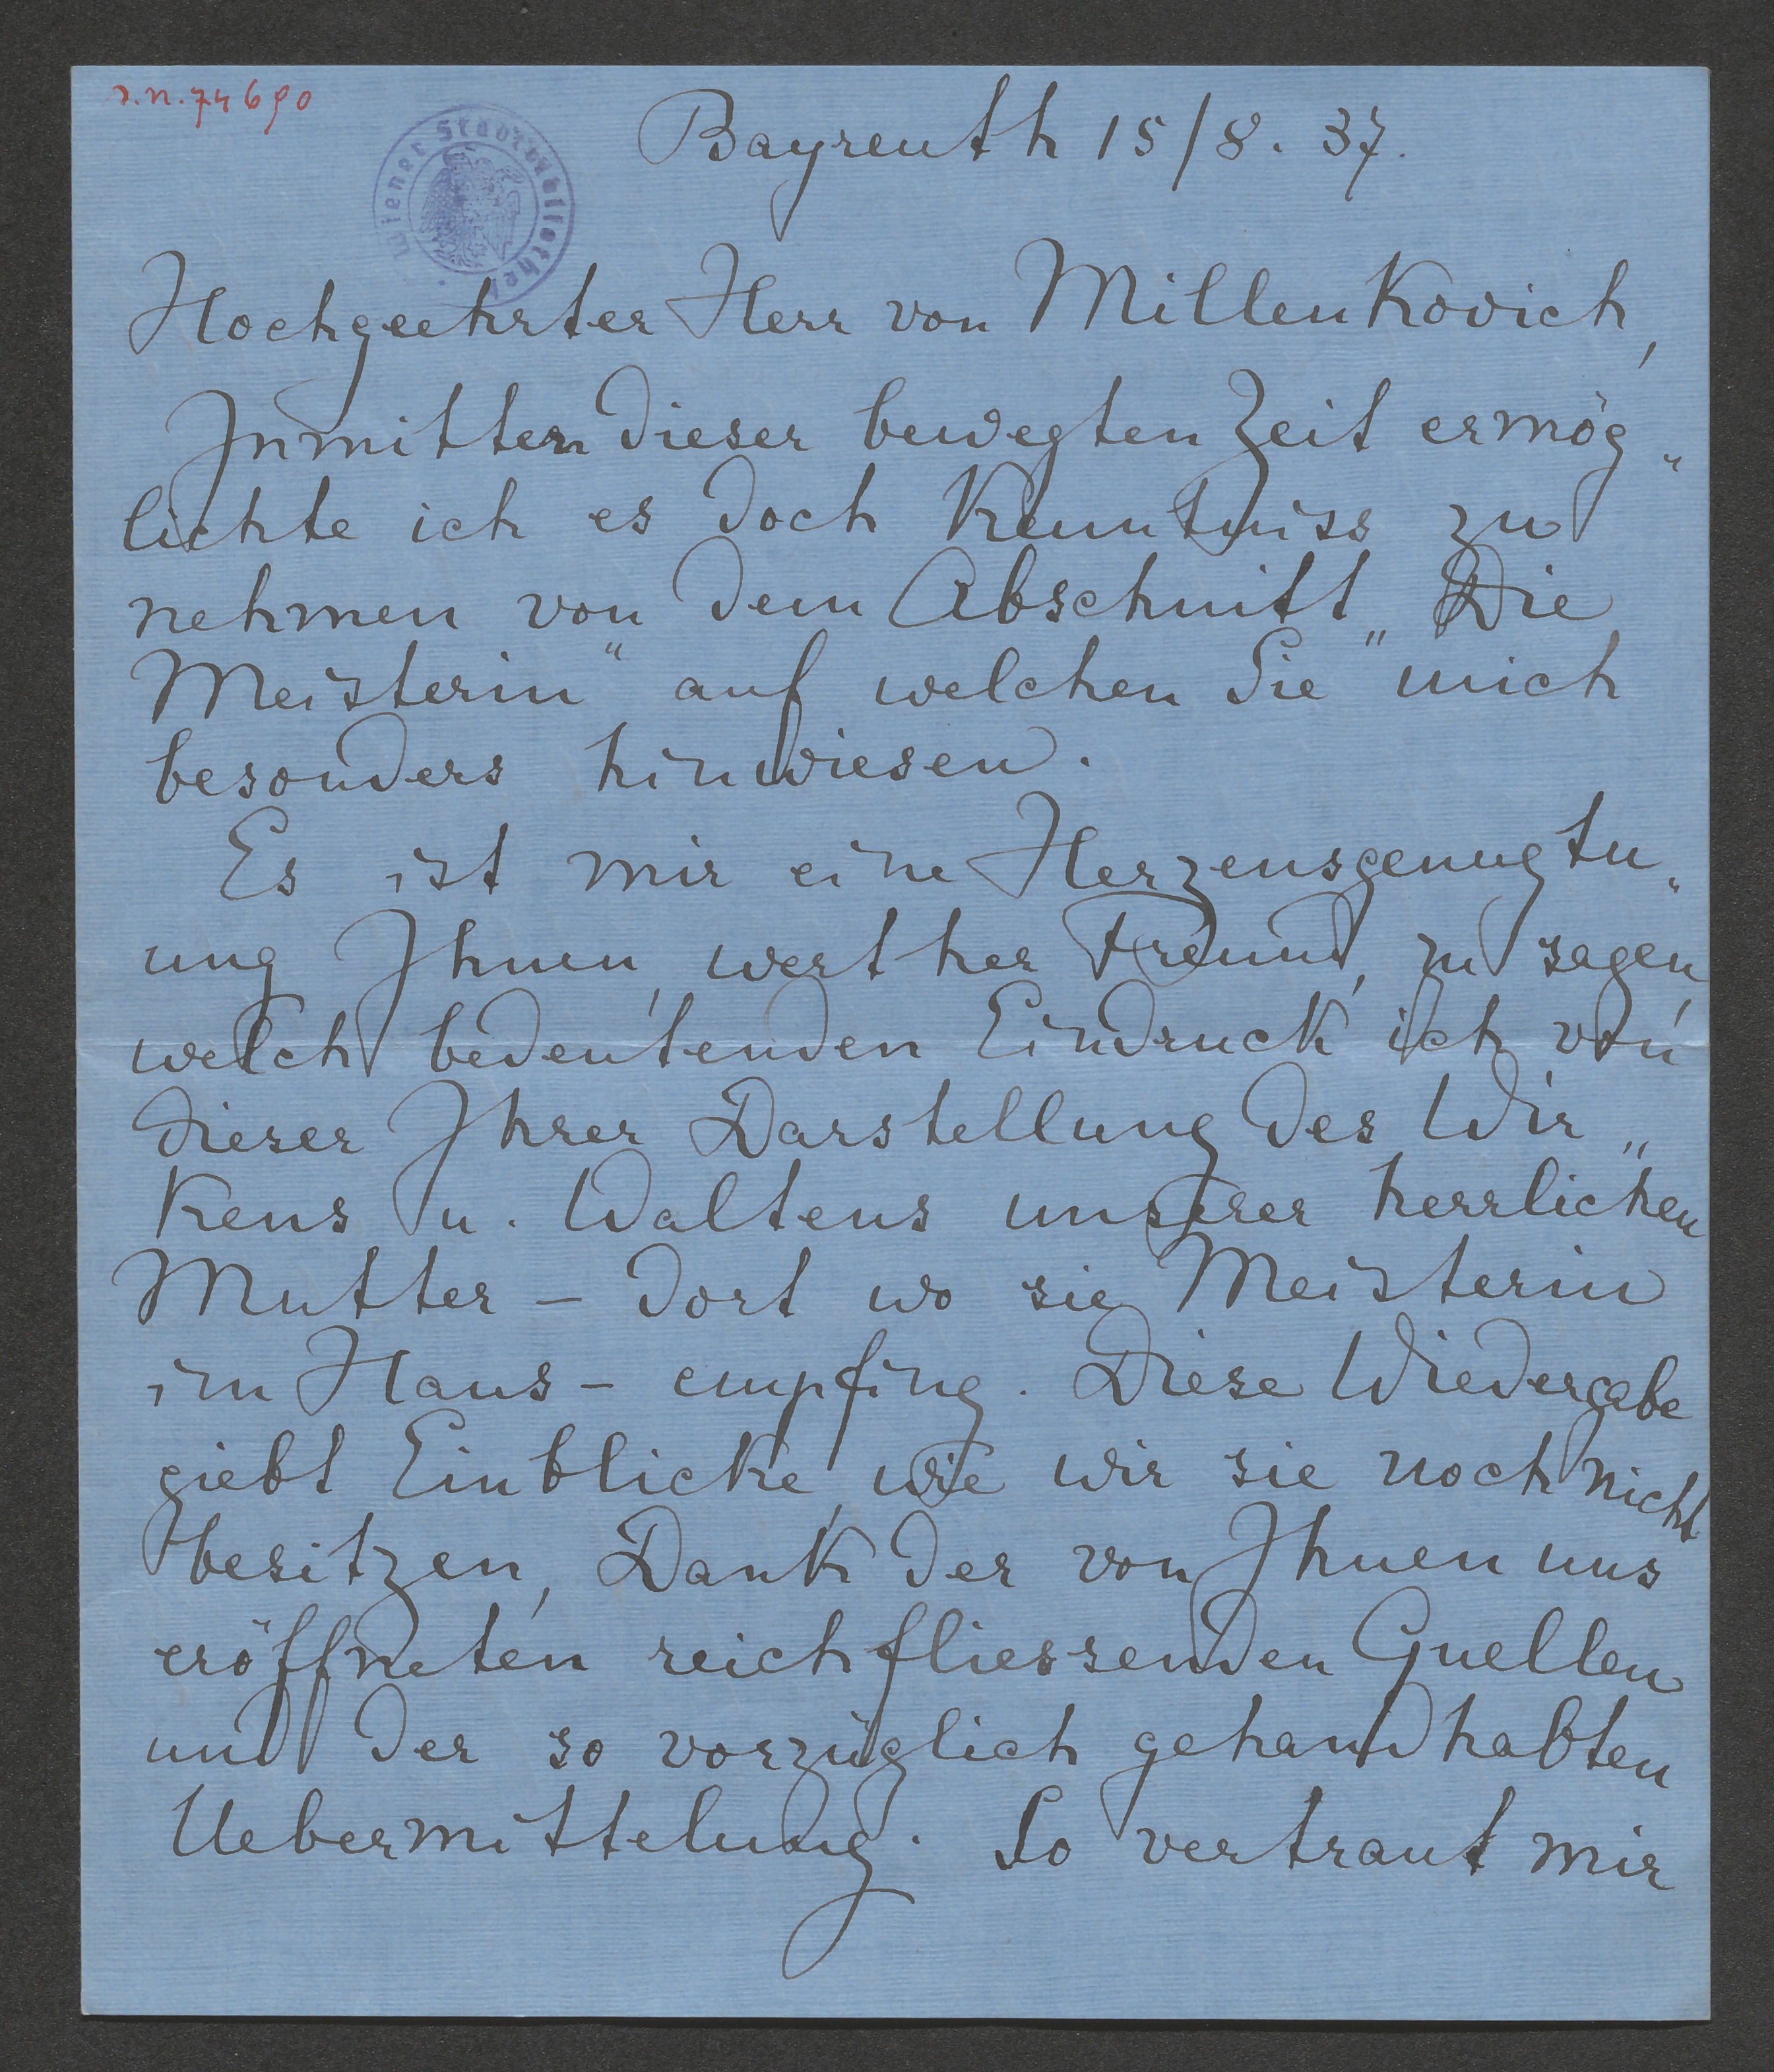 J.N. 74690
Wiener Stadtbibliothek
Bayreuth 15/8. 37.
Hochgeehrter Herr von Millenkovich,
Inmitten dieser bewegten Zeit ermög„
lichte ich es doch Kenntniss zu
nehmen von dem Abschnitt „Die
Meisterin“ auf welchen Sie mich
besonders hinwiesen.
Es ist mir eine Herzensgenugtu„
ung Ihnen, werther Freund, zu sagen,
welch bedeutenden Eindruck ich von
dieser Ihrer Darstellung des Wir„
kens u. Waltens unserer herrlichen
Mutter – dort wo sie Meisterin
im Haus – empfing. Diese Wiedergabe
giebt Einblicke, wie wir sie noch nicht
besitzen, Dank der von Ihnen uns
eröffneten reichfliessenden Quellen
und der so vorzüglich gehandhabten
Uebermittelung. So vertraut mir